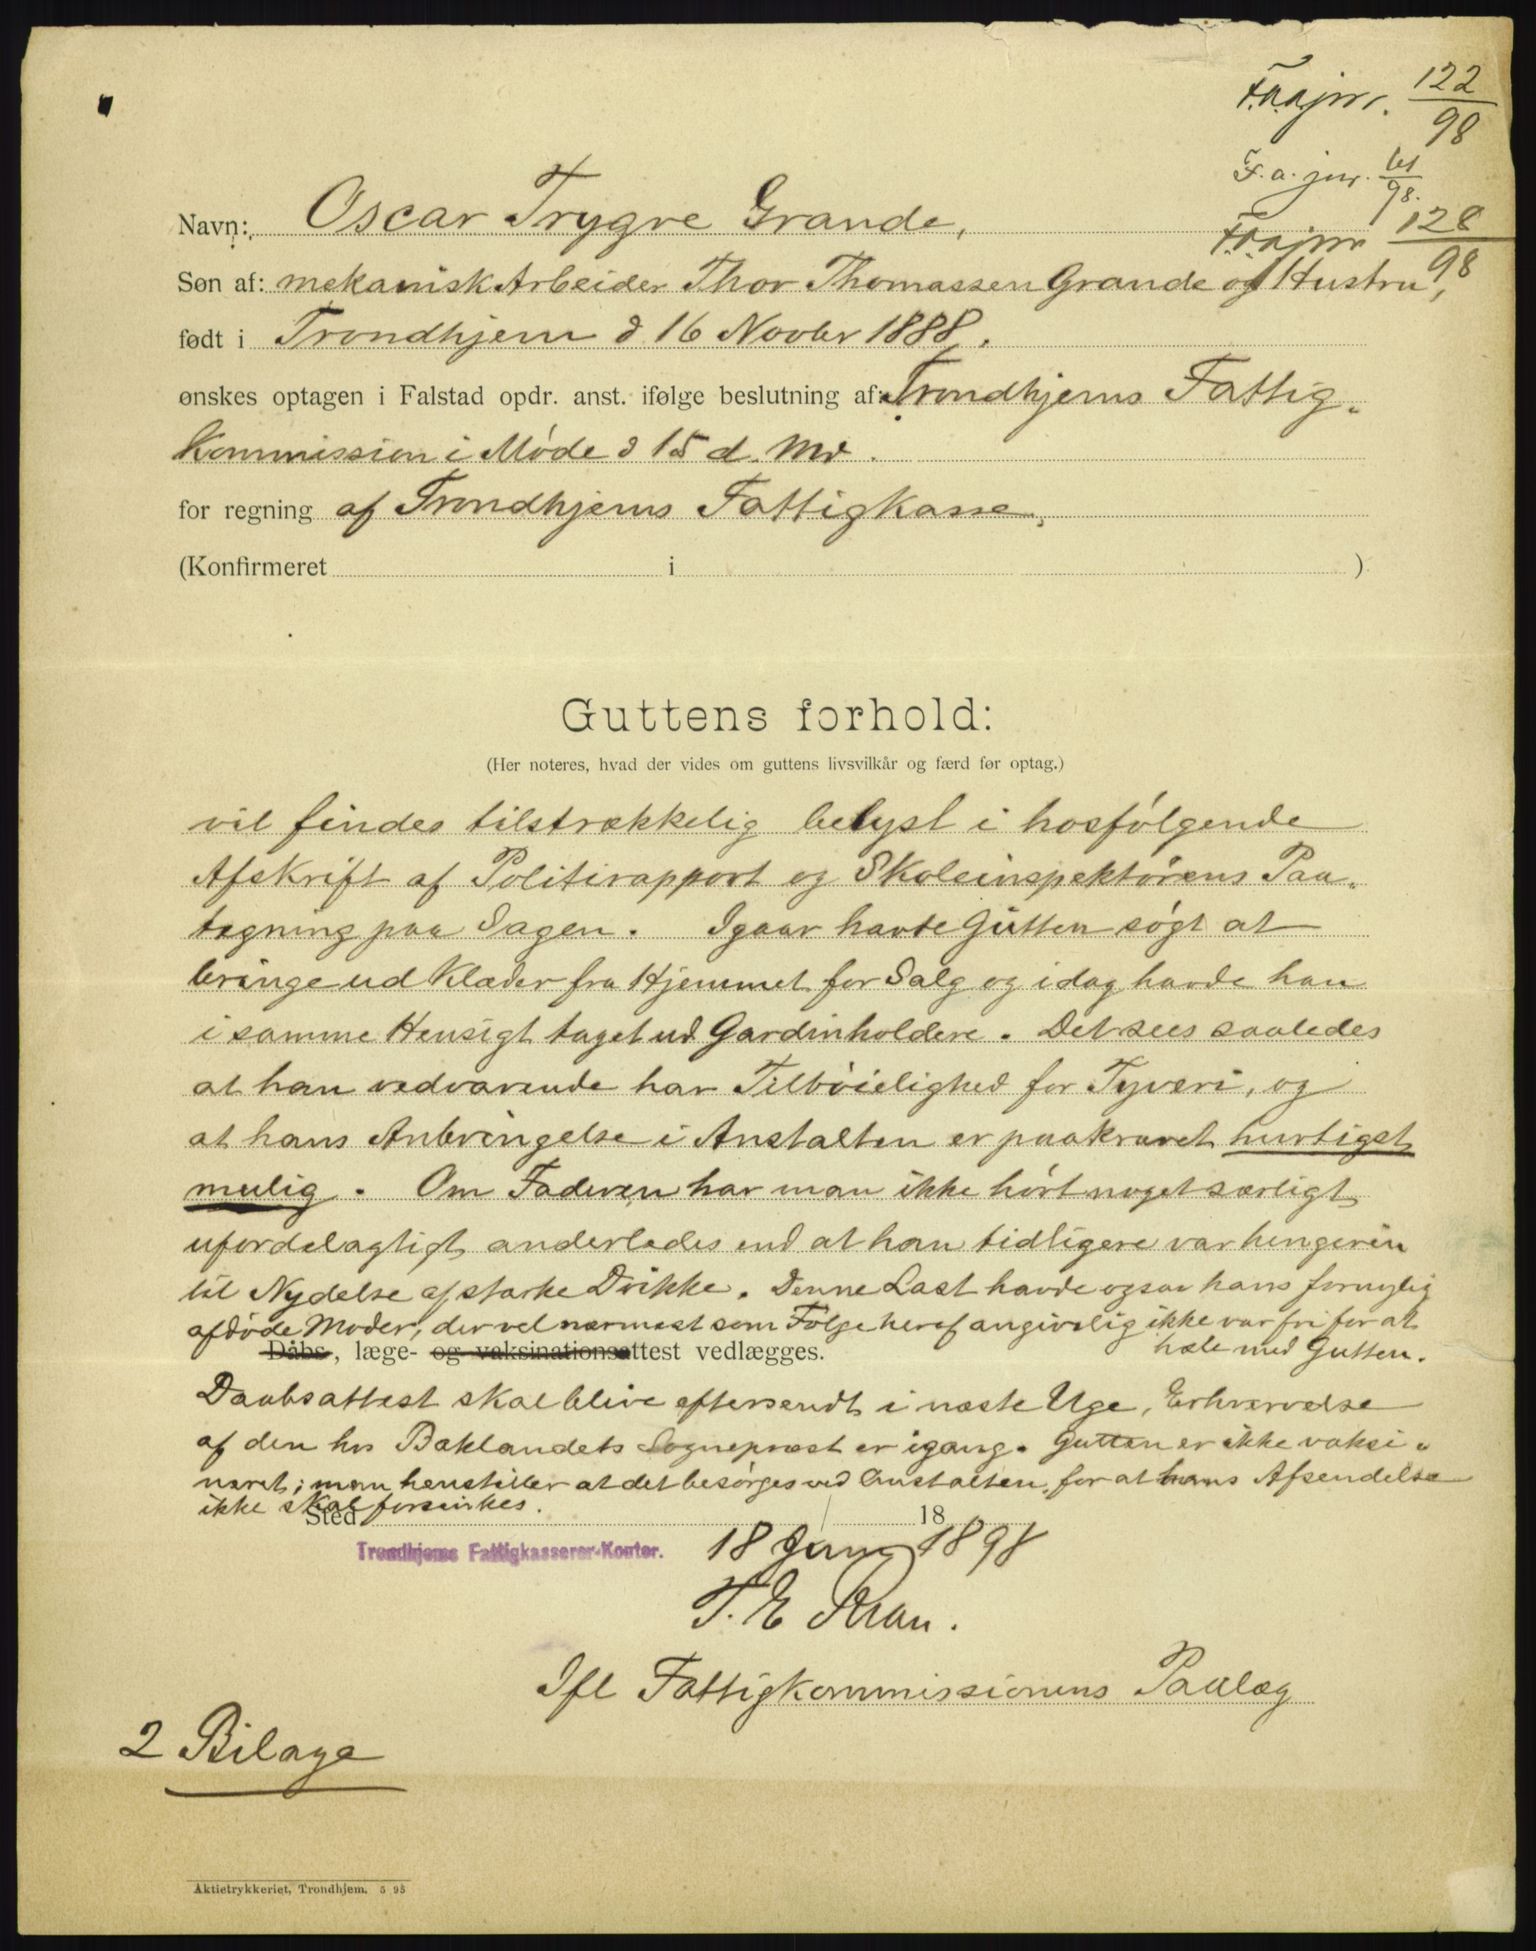 F.a.jnr. 122/98
F. a. jnr. 61/98.
F.a.jnr 128/98
Navn: Oscar Trygve Grande,
Søn af: mekanisk Arbeider Thor Thomassen Grande og Hustru,
født i Trondhjem d 16 Novbr 1888.
ønskes optagen i Falstad opdr. anst. ifølge beslutning af: Trondhjems Fattig-
kommission i Møde d 15 d. Md.
for regning af Trondhjems Fattigkasse.
(Konfirmeret i )
Guttens forhold:
(Her noteres, hvad der vides om guttens livsvilkår og færd før optag.)
vil findes tilstrækkelig belyst i hosfølgende
Afskrift af Politirapport og Skoleinspektørens Paa-
tegning paa Sagen. Igaar havde Gutten søgt at
bringe ud Klæder fra Hjemmet for Salg og idag havde han
i samme Hensigt taget ud Gardinholdere. Det sees saaledes
at han vedvarende har Tilbøielighed for Tyveri, og
at hans Anbringelse i Anstalten er paakrævet hurtigst
mulig. Om Faderen har man ikke hørt noget særligt
ufordelagtigt anderledes end at han tidligere var hengiven
til Nydelse af stærke Drikke. Denne Last havde ogsaa hans fornylig
afdøde Moder, der vel nærmest som Følge heraf angivelig ikke var fri for at
hæle med Gutten.
Dåbs, læge- og vaksinationsattest vedlægges.
Daabsattest skal blive eftersendt i næste Uge, Erhvervelse
af den hos Baklandets Sognepræst er igang. Gutten er ikke vaksi-
neret; man henstiller at det besørges ved Anstalten, for at hans Afsendelse
ikke skal forsinkes.
Sted 18
Trondhjems Fattigkasserer-Kontor.
18 Juni 1898
T. E
Ifl Fattigkommissionens Paalæg
2 Bilage
Aktietrykkeriet, Trondhjem. 5 95